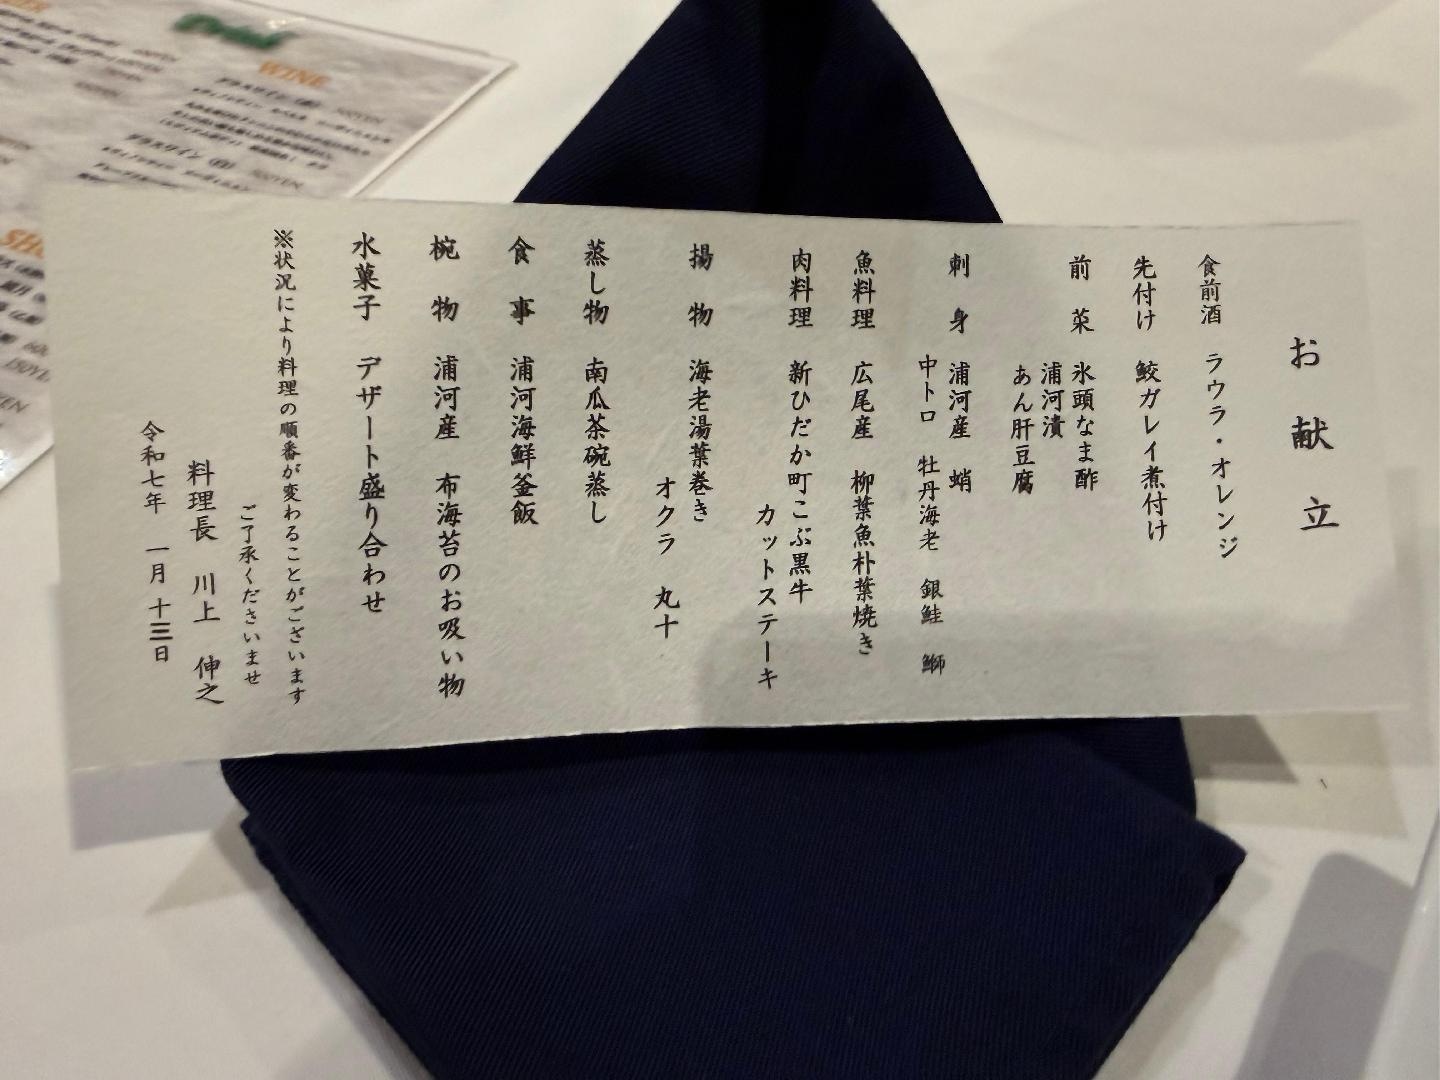 お献立
食前酒 ラウラ・オレンジ
先付け 鮫ガレイ煮付け
前菜 氷頭なま酢
浦河漬
あん肝豆腐
刺身 浦河産 蛸
中トロ 牡丹海老 銀鮭 鰤
魚料理 広尾産 柳葉魚朴葉焼き
肉料理 新ひだか町こぶ黒牛
カットステーキ
揚物 海老湯葉巻き
オクラ 丸十
蒸し物 南瓜茶碗蒸し
食事 浦河海鮮釜飯
椀物 浦河産 布海苔のお吸い物
水菓子 デザート盛り合わせ
※状況により料理の順番が変わることがございます
ご了承くださいませ
料理長 川上 伸之
令和七年 一月 十三日
Drink
WINE